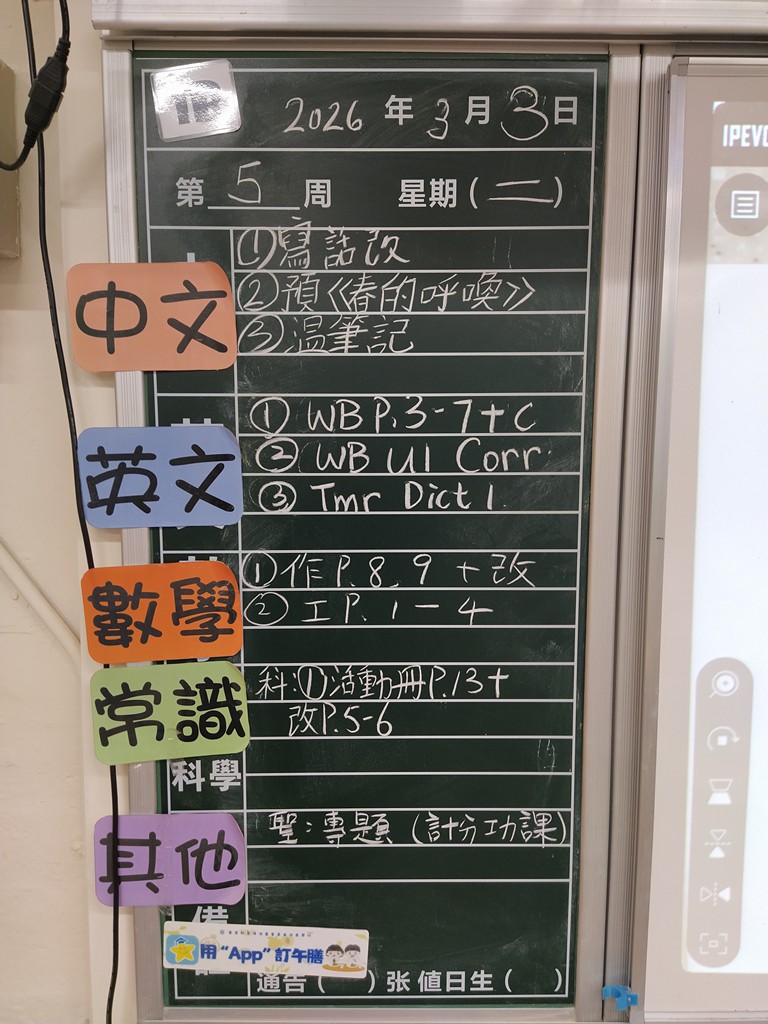 2026 年 3 月 3 日
第 5 周 星期 (二)
中文
①寫話改
②預《春的呼喚》
③温筆記
英文
① WB P.3-7+C
② WB U1 Corr.
③ Tmr Dict 1
數學
①作P.8, 9 + 改
② 工P. 1-4
常識
科:①活動冊P.13+
改P.5-6
科學
其他
聖:專題 (計分功課)
備
用 "App" 訂午膳
通告 ( ) 张 值日生 ( )
IPEVO